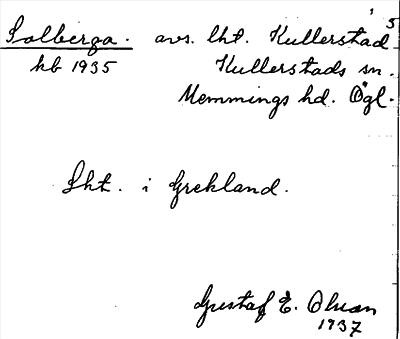 5
Solberga. avs. lht. Kullerstad
kb 1935 Kullerstads sn.
Memmings hd. Ögl.
Lht. i Grekland.
Gustaf E. Olson
1937